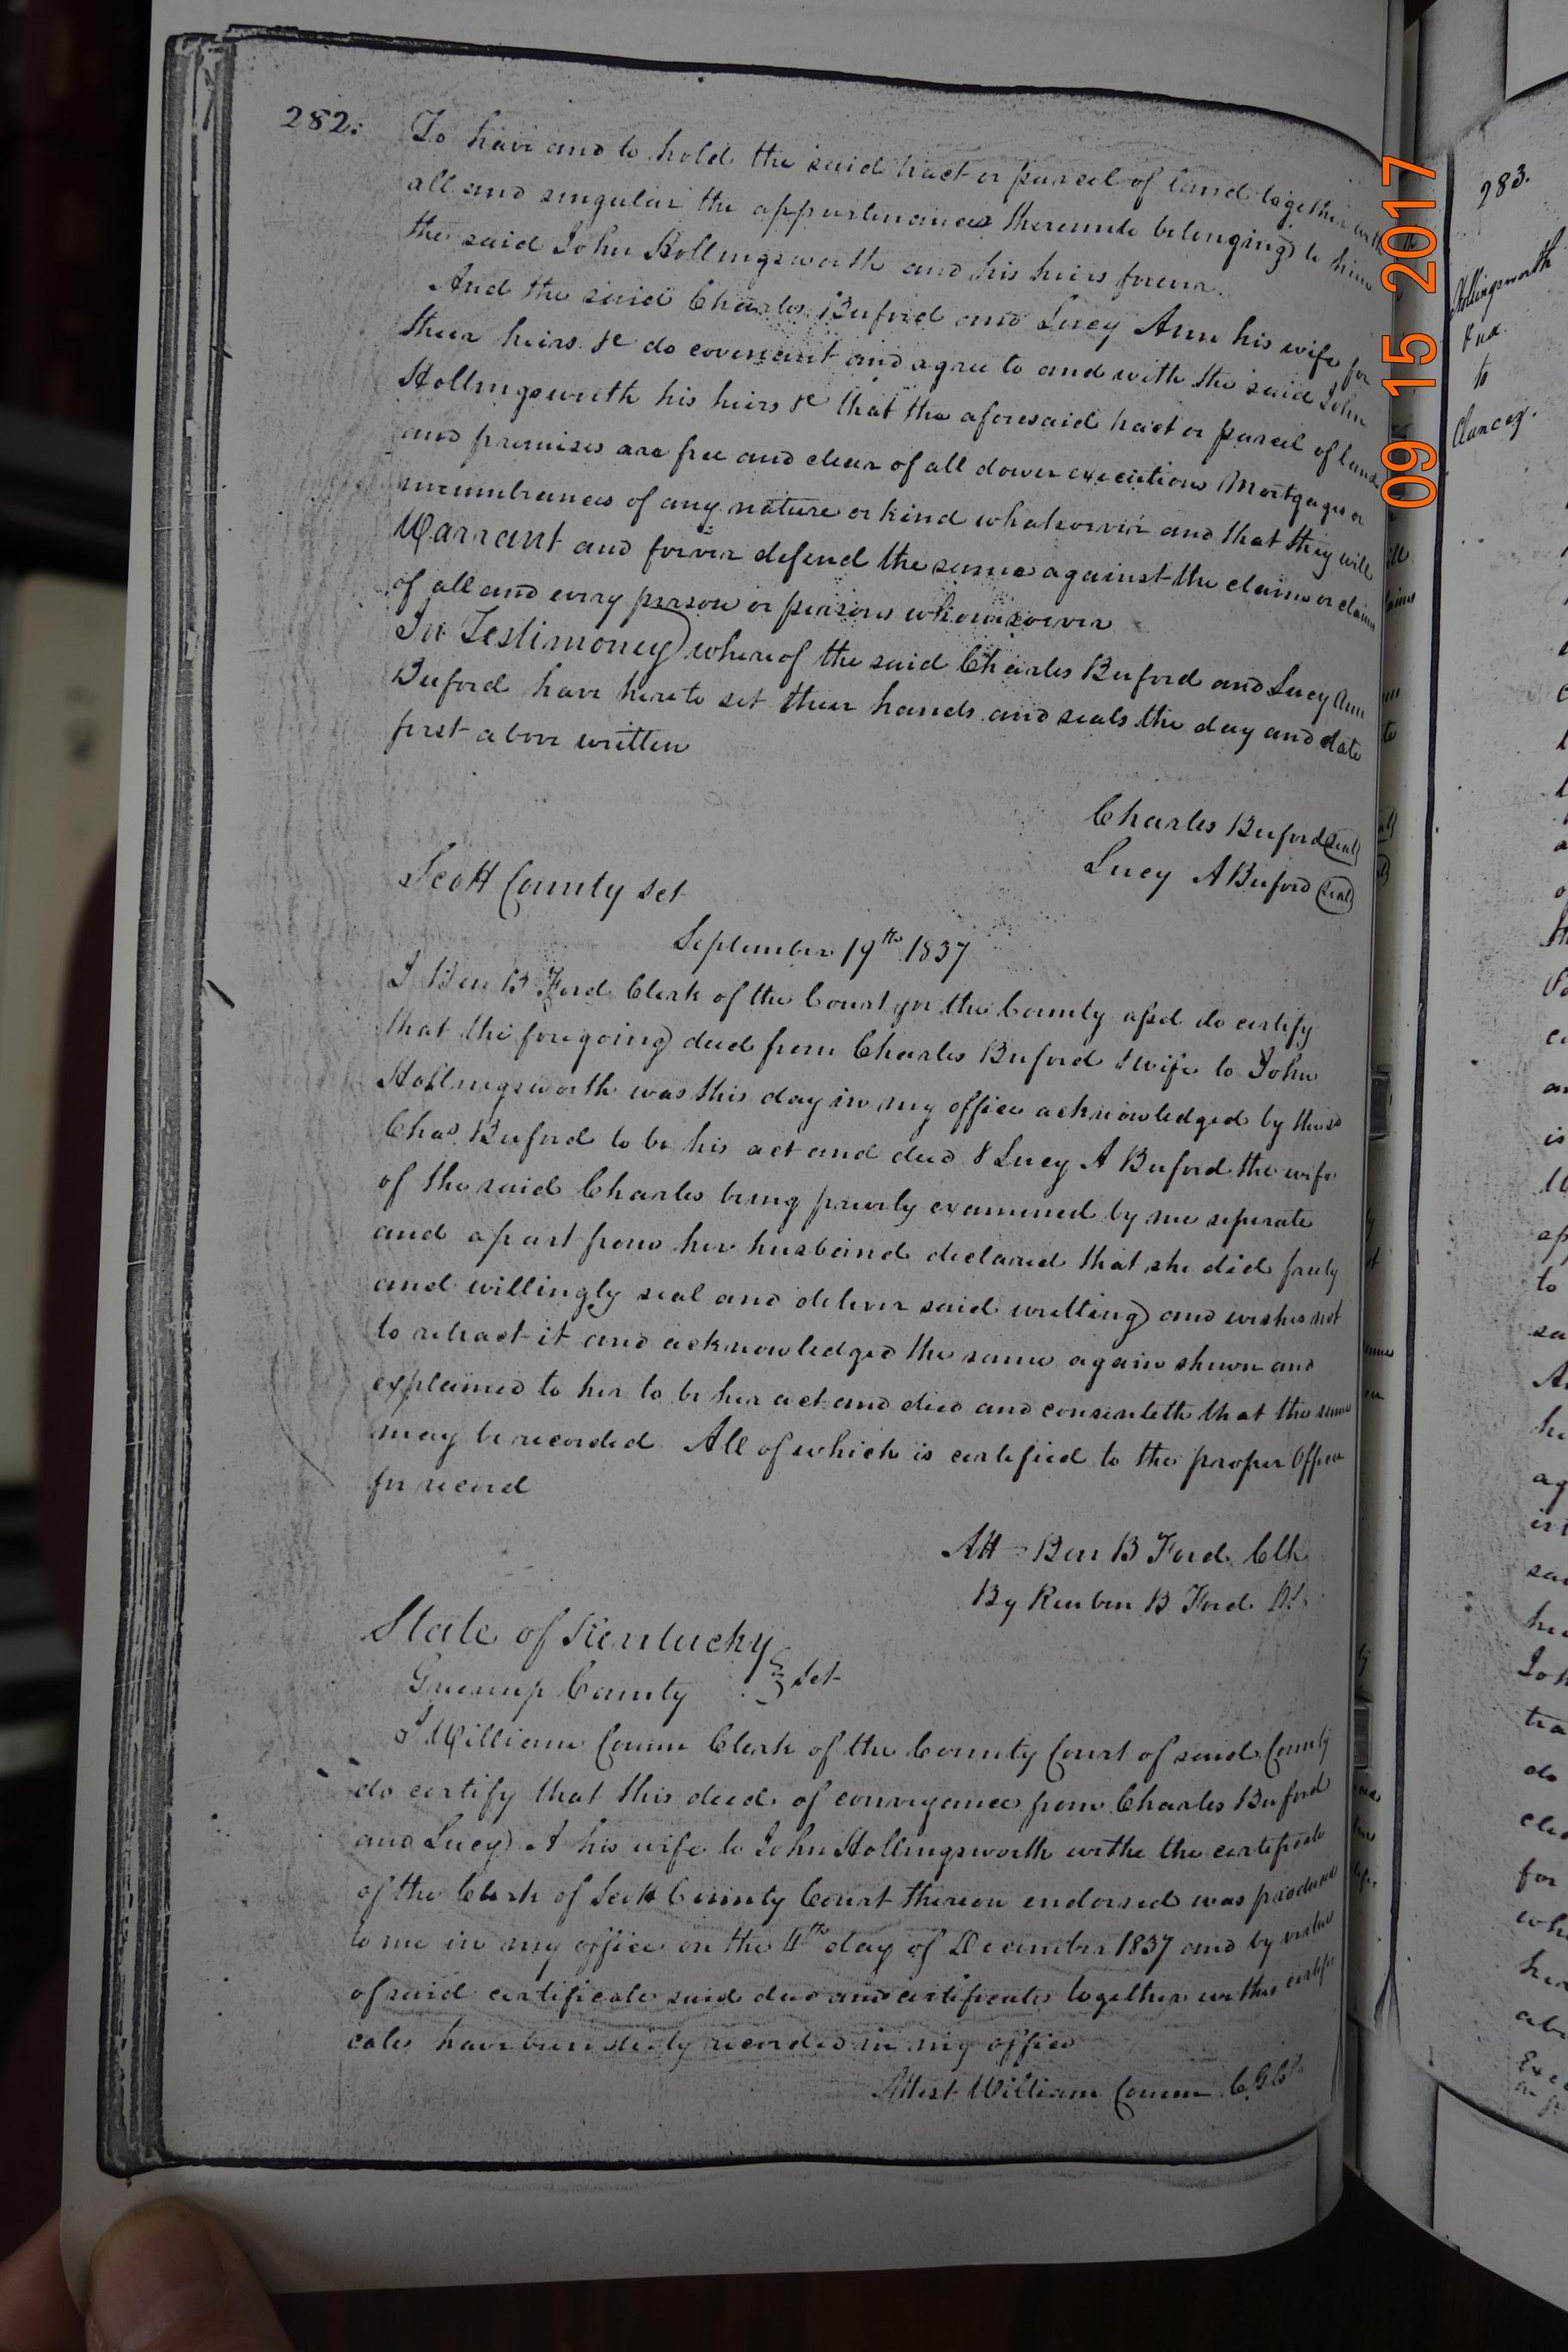 282.
To have and to hold the said tract or parcel of land together with
all and singular the appurtenances thereunto belonging to him
the said John Hollingsworth and his heirs forever.
And the said Charles Buford and Lucy Ann his wife for
their heirs &c do covenant and agree to and with the said John
Hollingsworth his heirs &c that the aforesaid tract or parcel of land
and premises are free and clear of all dower executions Mortgages or
incumbrances of any nature or kind whatsoever and that they will
Warrant and forever defend the same against the claim or claims
of all and every person or persons whomsoever
In Testimoney whereof the said Charles Buford and Lucy Ann
Buford have hereto set their hands and seals the day and date
first above written
Charles Buford (seal)
Lucy A Buford (seal)
Scott County Sct
September 19th 1837
I Ben B Ford Clerk of the Court for the County afsd do certify
that the foregoing deed from Charles Buford & wife to John
Hollingsworth was this day in my office acknowledged by the sd
Chas. Buford to be his act and deed & Lucy A Buford the wife
of the said Charles being privily examined by me seperate
and apart from her husband declared that she did freely
and willingly seal and deliver said writting and wishes not
to retract it and acknowledged the same again shewn and
explained to her to be her act and deed and consenteth that the same
may be recorded. All of which is certified to the proper Office
for record
Att - Ben B Ford Clk
By Reuben B Ford
State of Kentucky
Greenup County } Sct
I William Corum Clerk of the County Court of said County
do certify that this deed of conveyance from Charles Buford
and Lucy A his wife to John Hollingsworth withe the certificate
of the Clerk of Scott County Court thereon endorsed was produced
to me in my office on the 4th day of December 1837 and by virtue
of said certificate said deed and certificates together with this certifi
cates have been duly recorded in my office
Attest William Corum C.G.C.C.
09 15 2017
283.
Hollingsworth
to
Clancey.